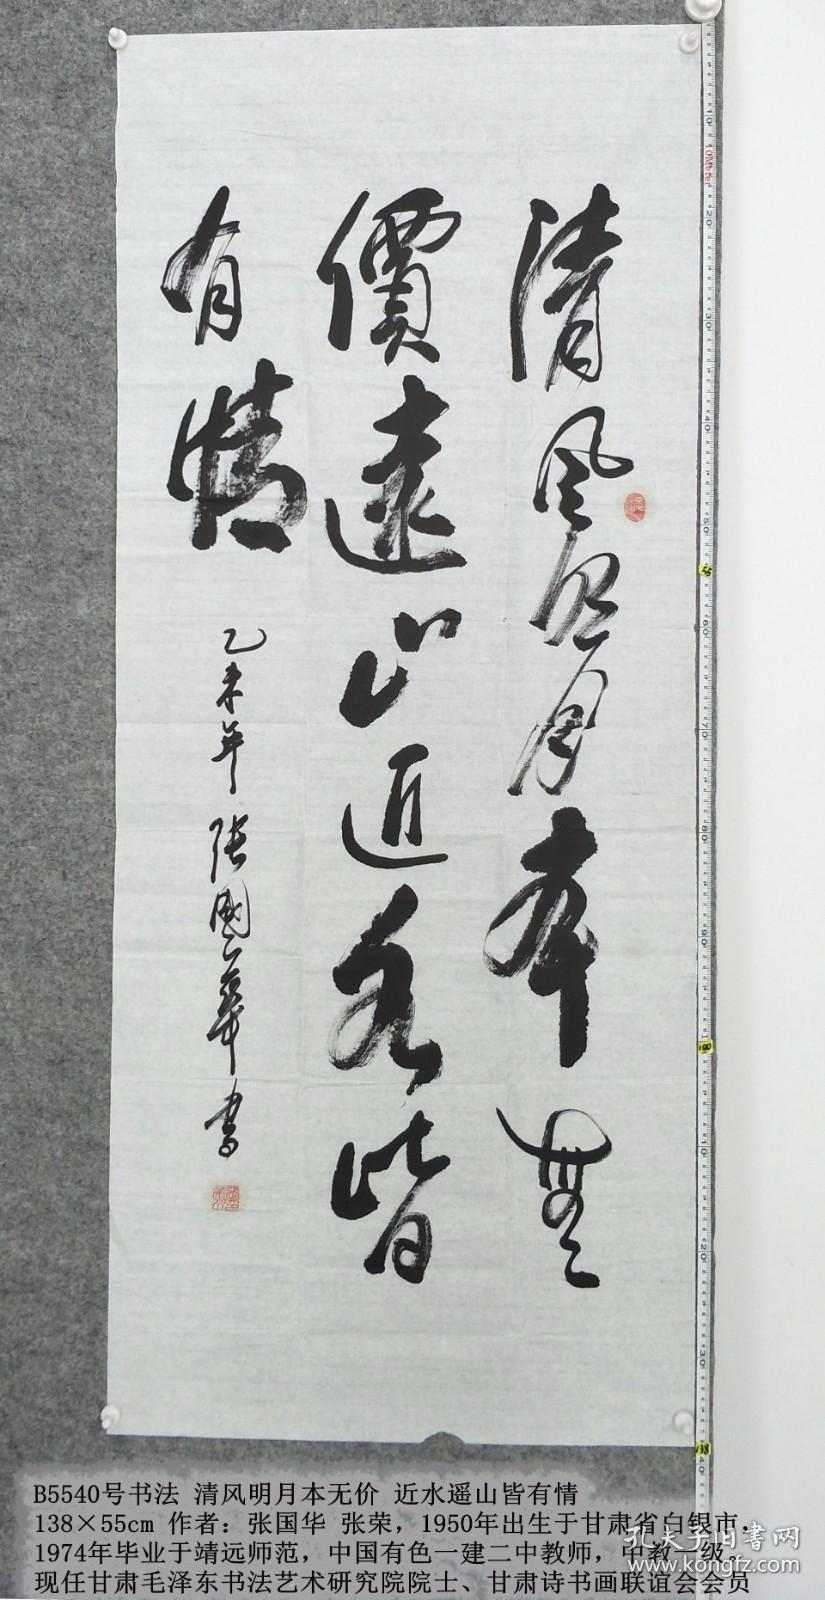 清風明月本無
價遠山近水皆
有情
乙未年 張國華書
B5540号书法 清风明月本无价 近水遥山皆有情
138×55cm 作者：张国华 张荣，1950年出生于甘肃省白银市.
1974年毕业于靖远师范，中国有色一建二中教师，中教一级.
现任甘肃毛泽东书法艺术研究院院士、甘肃诗书画联谊会会员
孔夫子旧书网
www.kongfz.com